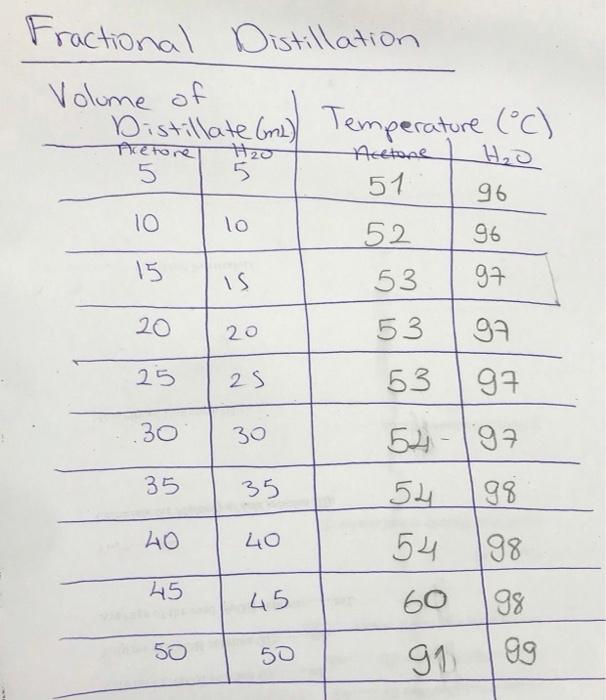 Fractional Distillation
Volume of Distillate (mL) Temperature (°C)
Acetone H2O Acetone H2O
5 5 51 96
10 10 52 96
15 15 53 97
20 20 53 97
25 25 53 97
30 30 54 97
35 35 54 98
40 40 54 98
45 45 60 98
50 50 91 99